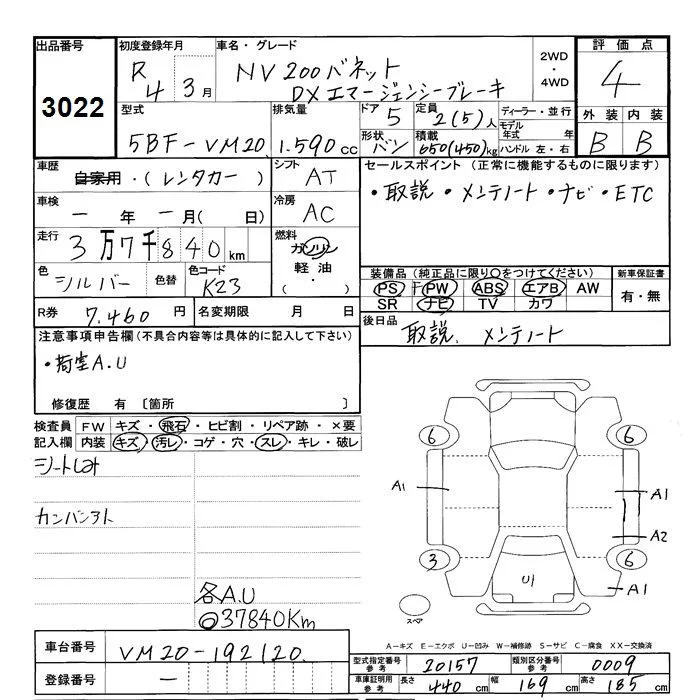 出品番号 3022
初度登録年月 R4 3月
車名・グレード NV200バネット
DXエマージェンシーブレーキ
2WD・4WD
評価点 4
型式 5BF-VM20
排気量 1.590cc
ドア 5
形状 バン
定員 2(5)人
積載 650(450)kg
ディーラー・並行
モデル年式 年
ハンドル 左・右
外装 内装
B B
車歴 自家用・(レンタカー)
シフト AT
車検 ー年ー月(日)
冷房 AC
走行 3万7千840km
燃料 ガソリン
軽油
・( )
色 シルバー 色替
色コード K23
セールスポイント(正常に機能するものに限ります)
・取説・メンテノート・ナビ・ETC
装備品(純正品に限り○をつけてください)
PS PW ABS エアB AW
SR ナビ TV カワ
新車保証書
有・無
R券 7,460円
名変期限 月 日
後日品 取説. メンテノート
注意事項申告欄(不具合内容等は具体的に記入して下さい)
・荷室A.U
修復歴 有〔箇所 〕
検査員記入欄
FW キズ・飛石・ヒビ割・リペア跡・×要
内装 キズ・汚レ・コゲ・穴・スレ・キレ・破レ
シートしみ
カンバンアト
各A.U
37840Km
6 6
A1 A1
A2
3 6
U1 A1
スペア
A-キズ E-エクボ U-凹み W-補修跡 S-サビ C-腐食 XX-交換済
車台番号 VM20-192120
登録番号 ー
型式指定番号参考 20157
類別区分番号参考 0009
車庫証明用参考 長さ 440cm 幅 169cm 高さ 185cm